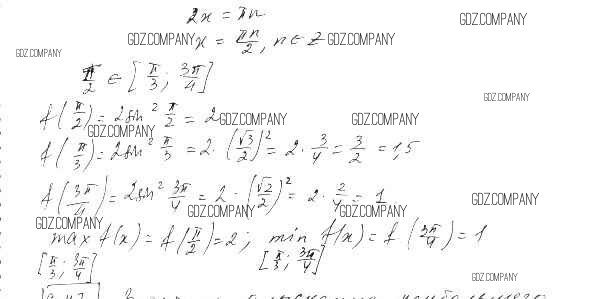 2x = πn
GDZ.COMPANY
GDZ.COMPANY x = πn/2, n ∈ Z GDZ.COMPANY
GDZ.COMPANY
π/2 ∈ [π/3; 3π/4]
GDZ.COMPANY
f(π/2) = 2sin² π/2 = 2 GDZ.COMPANY GDZ.COMPANY
GDZ.COMPANY
f(π/3) = 2sin² π/3 = 2·(√3/2)² = 2·3/4 = 3/2 = 1,5
f(3π/4) = 2sin² 3π/4 = 2·(√2/2)² = 2·2/4 = 1
GDZ.COMPANY
GDZ.COMPANY GDZ.COMPANY GDZ.COMPANY
max f(x) = f(π/2) = 2; min f(x) = f(3π/4) = 1
[π/3; 3π/4] [π/3; 3π/4]
GDZ.COMPANY